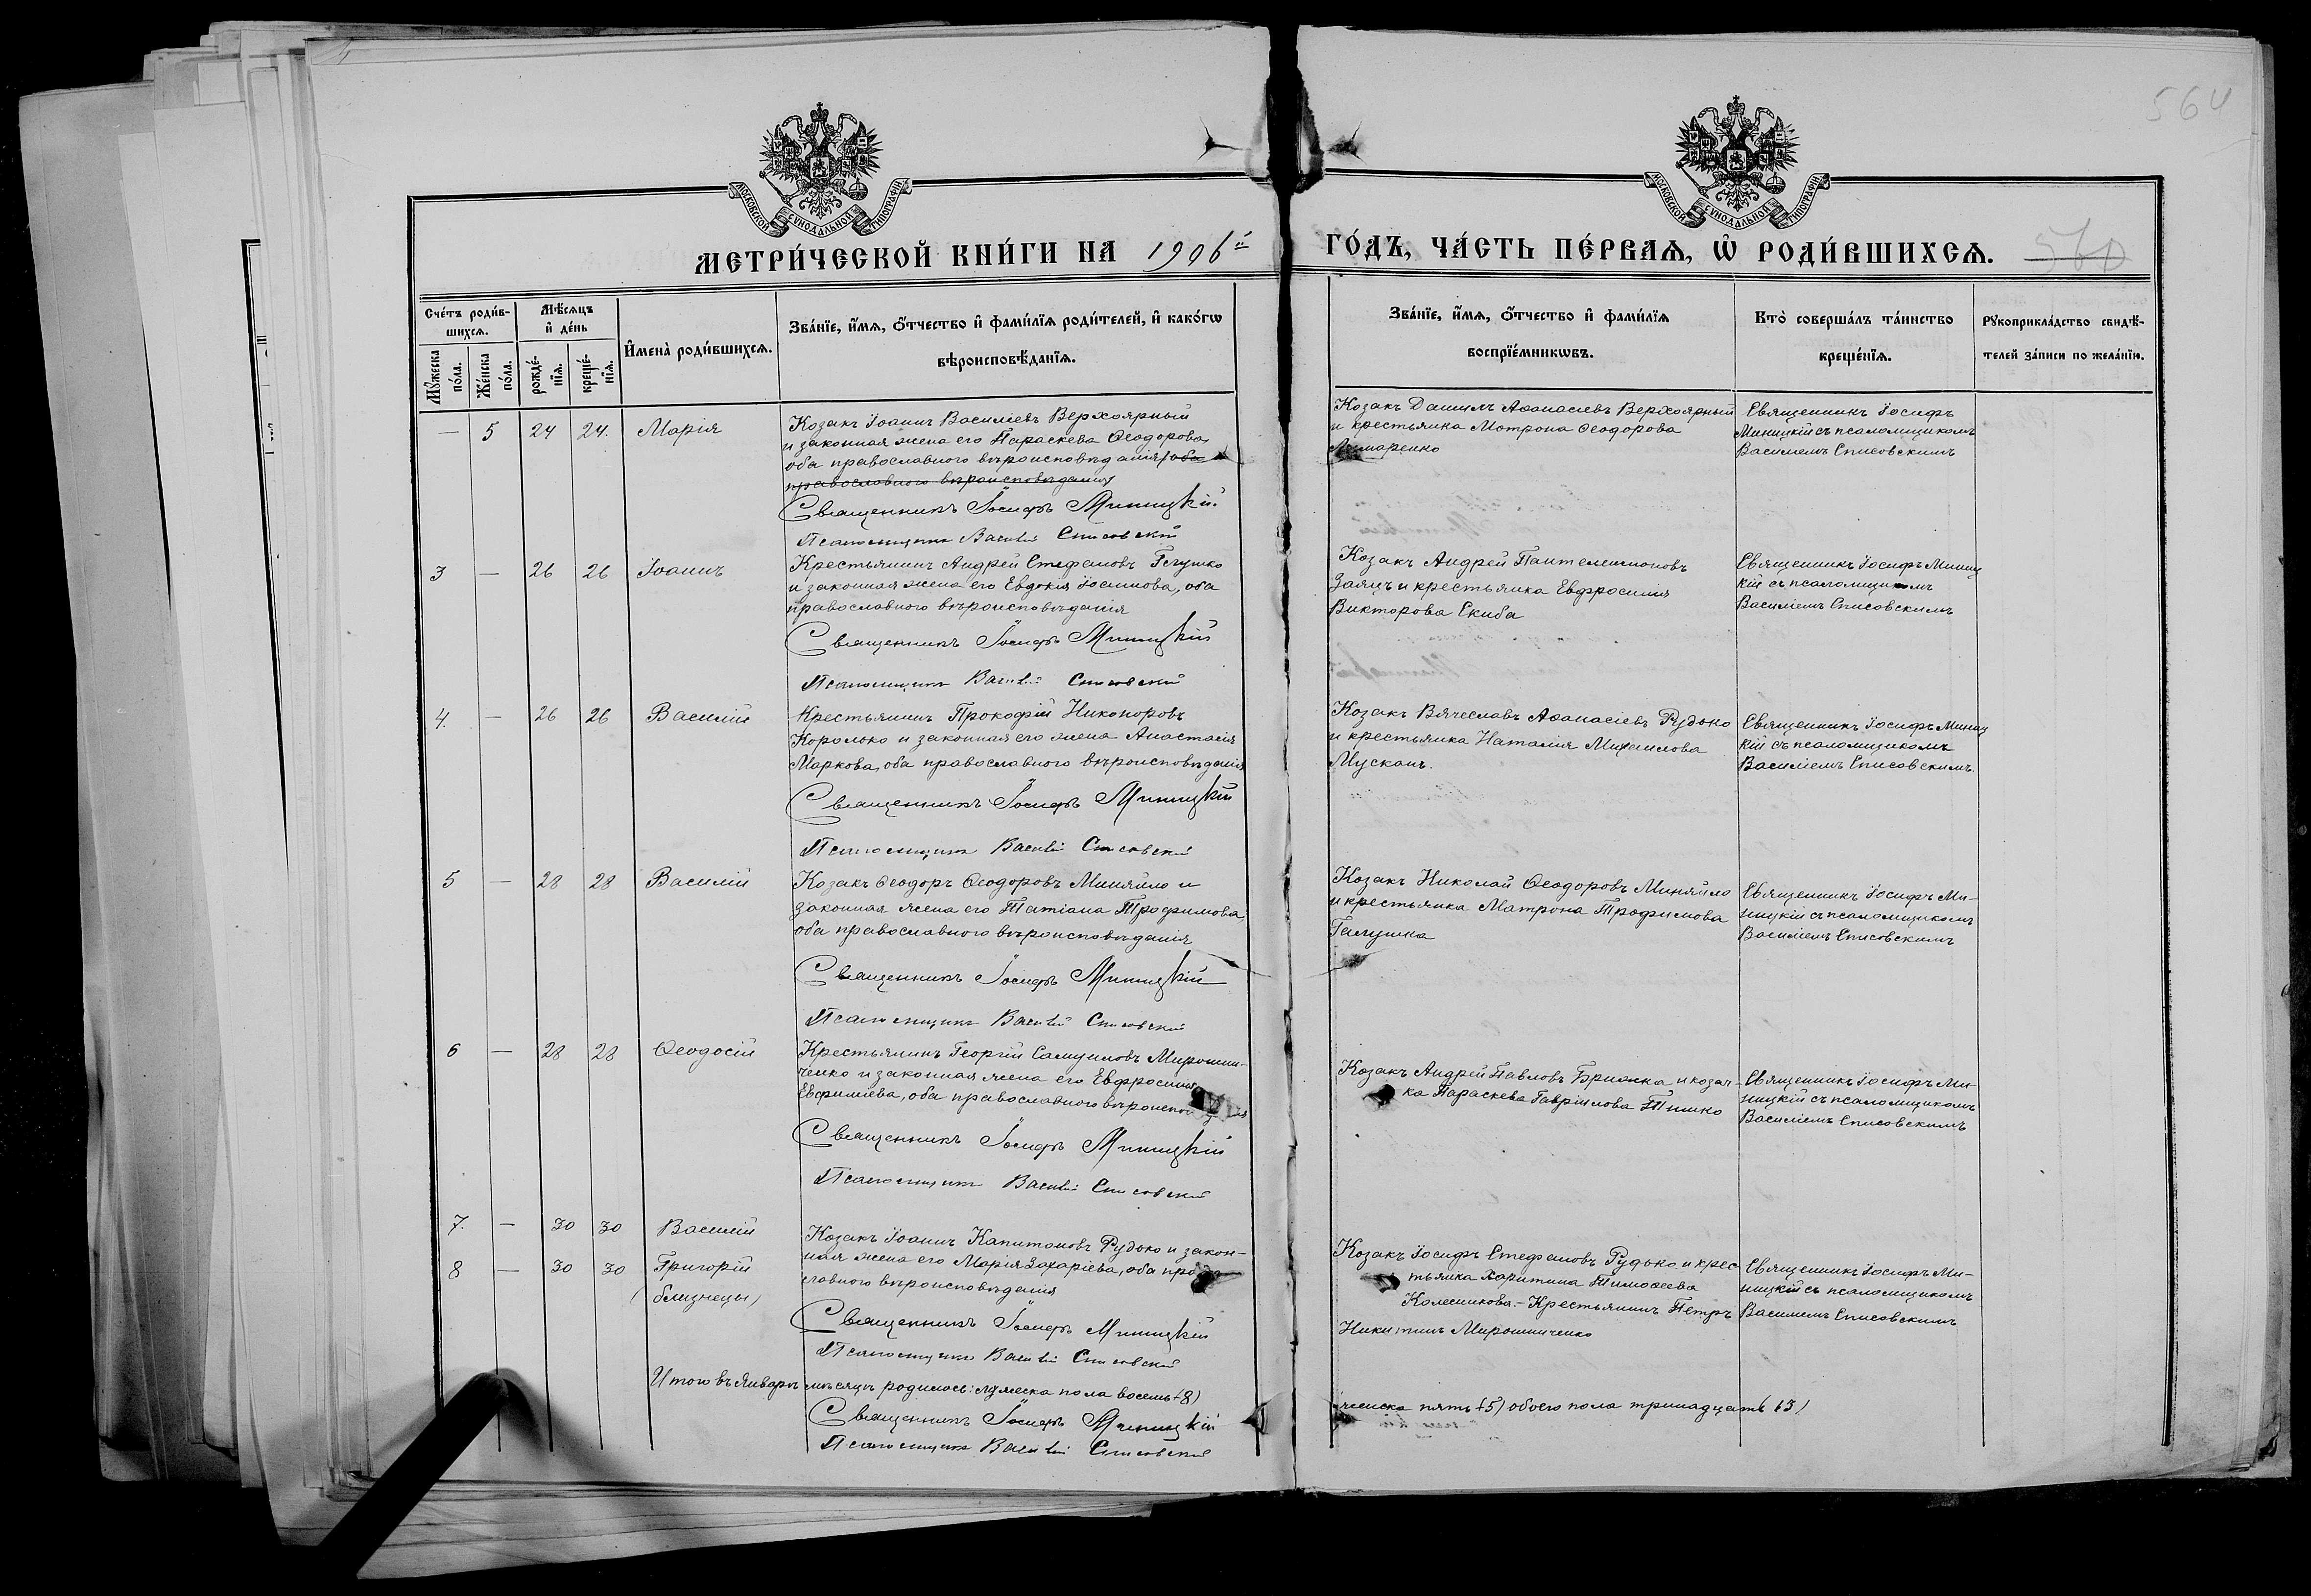 564
МОСКОВСКОЙ СѴНОДАЛЬНОЙ ТИПОГРАФІИ
МОСКОВСКОЙ СѴНОДАЛЬНОЙ ТИПОГРАФІИ
МЕТРИ́ЧЕСКОЙ КНИ́ГИ НА 1906й ГО́ДЪ, ЧА́СТЬ ПЕ́РВАѦ, Ѡ҆ РОДИ́ВШИХСѦ. 560
Сче́тъ роди́в-
шихсѧ.
Мꙋ́жеска по́ла.
Же́нска по́ла.
Мѣ́сѧцъ
и҆ де́нь
рожде́-
нїѧ.
креще́-
нїѧ.
И҆мена̀ роди́вшихсѧ.
Зва́нїе, и҆́мѧ, ѻ҆́тчество и҆ фами́лїѧ роди́телей, и҆ како́гѡ
вѣроисповѣ́данїѧ.
Зва́нїе, и҆́мѧ, ѻ҆́тчество и҆ фами́лїѧ
воспрїе́мникѡвъ.
Кто̀ соверша́лъ та́инство
креще́нїѧ.
Рꙋкоприкла́дство свидѣ́-
телей за́писи по жела́нїю.
— 5 24 24. Марія
Козакъ Іоаннъ Василіевъ Верхоярный
и законная жена его Параскева Ѳеодорова,
оба православнаго вѣроисповѣданія, оба
православного вѣроисповѣданія
Священникъ Іосифъ Миницкій.
Псаломщикъ Василій Списовскій
Козакъ Даниилъ Аѳанасіевъ Верхоярный
и крестьянка Матрона Ѳеодорова
Священникъ Іосифъ
Миницкій съ псаломщикомъ
Василіемъ Списовскимъ
3 — 26 26 Іоаннъ
Крестьянинъ Андрей Стефановъ
и законная жена его Евдокія Іосифова, оба
православного вѣроисповѣданія
Священникъ Іосифъ Миницкій
Псаломщикъ Василій Списовскій
Козакъ Андрей Пантелеимоновъ
Заяцъ и крестьянка Евфросинія
Викторова Скиба
Священникъ Іосифъ Миниц
кій съ псаломщикомъ
Василіемъ Списовскимъ
4. — 26 26 Василій
Крестьянинъ Прокофій Никоноровъ
Королько и законная его жена Анастасія
Маркова, оба православного вѣроисповѣданія
Священникъ Іосифъ Миницкій
Псаломщикъ Василій Списовскій
Козакъ Вячеславъ Аѳанасіевъ Рудько
и крестьянка Наталія Михаилова
Мускань.
Священникъ Іосифъ Миниц
кій съ псаломщикомъ
Василіемъ Списовскимъ.
5 — 28 28 Василій
Козакъ Ѳеодоръ Ѳеодоровъ Миняйло и
законная жена его Татіана Трофимова,
оба православного вѣроисповѣданія
Священникъ Іосифъ Миницкій
Псаломщикъ Василій Списовскій
Козакъ Николай Ѳеодоровъ Миняйло
и крестьянка Матрона Трофимова
Галушка
Священникъ Іосифъ Ми-
ницкій съ псаломщикомъ
Василіемъ Списовскимъ
6 — 28 28 Ѳеодосій
Крестьянинъ Георгій Самуиловъ Мирошни-
ченко и законная жена его Евфросинія
Евфиміева, оба православного
Священникъ Іосифъ Миницкій
Псаломщикъ Василій Списовскій
Козакъ Андрей Павловъ и козач-
ка Параскева Гавріилова Тишко
Священникъ Іосифъ Ми-
ницкій съ псаломщикомъ
Василіемъ Списовскимъ
7. — 30 30 Василій
8 — 30 30 Григорій
(близнецы)
Козакъ Іоаннъ Капитоновъ Рудько и закон-
ная жена его Марія Захаріева, оба право
славного вѣроисповѣданія
Священникъ Іосифъ Миницкій
Псаломщикъ Василій Списовскій
Козакъ Іосифъ Стефановъ Рудько и крес
тьянка Харитина Тимоѳеева
Колесникова. – Крестьянинъ Петръ
Никитинъ Мирошниченко
Священникъ Іосифъ Ми-
ницкій съ псаломщикомъ
Василіемъ Списовскимъ
Итого въ Январѣ мѣсяцѣ родилось: мужеска пола восемь (8) женска пять (5) обоего пола тринадцать 13)
Священникъ Іосифъ Миницкій
Псаломщикъ Василій Списовскій